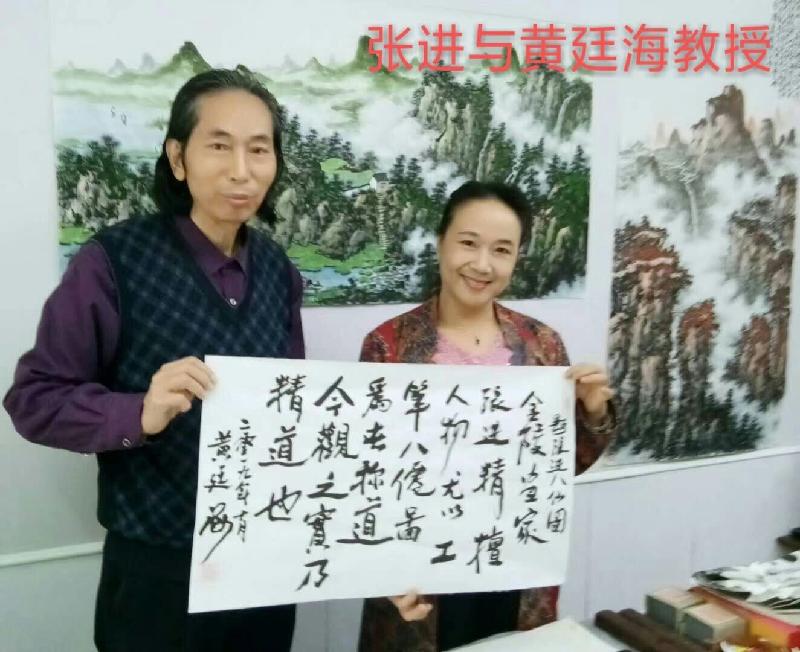 张进与黄廷海教授
题张进八仙图
金陵画家
張进精擅
人物尤以工
筆八僊啚
爲世称道
今觀之實乃
精道也
二零一九年十月
黄廷海